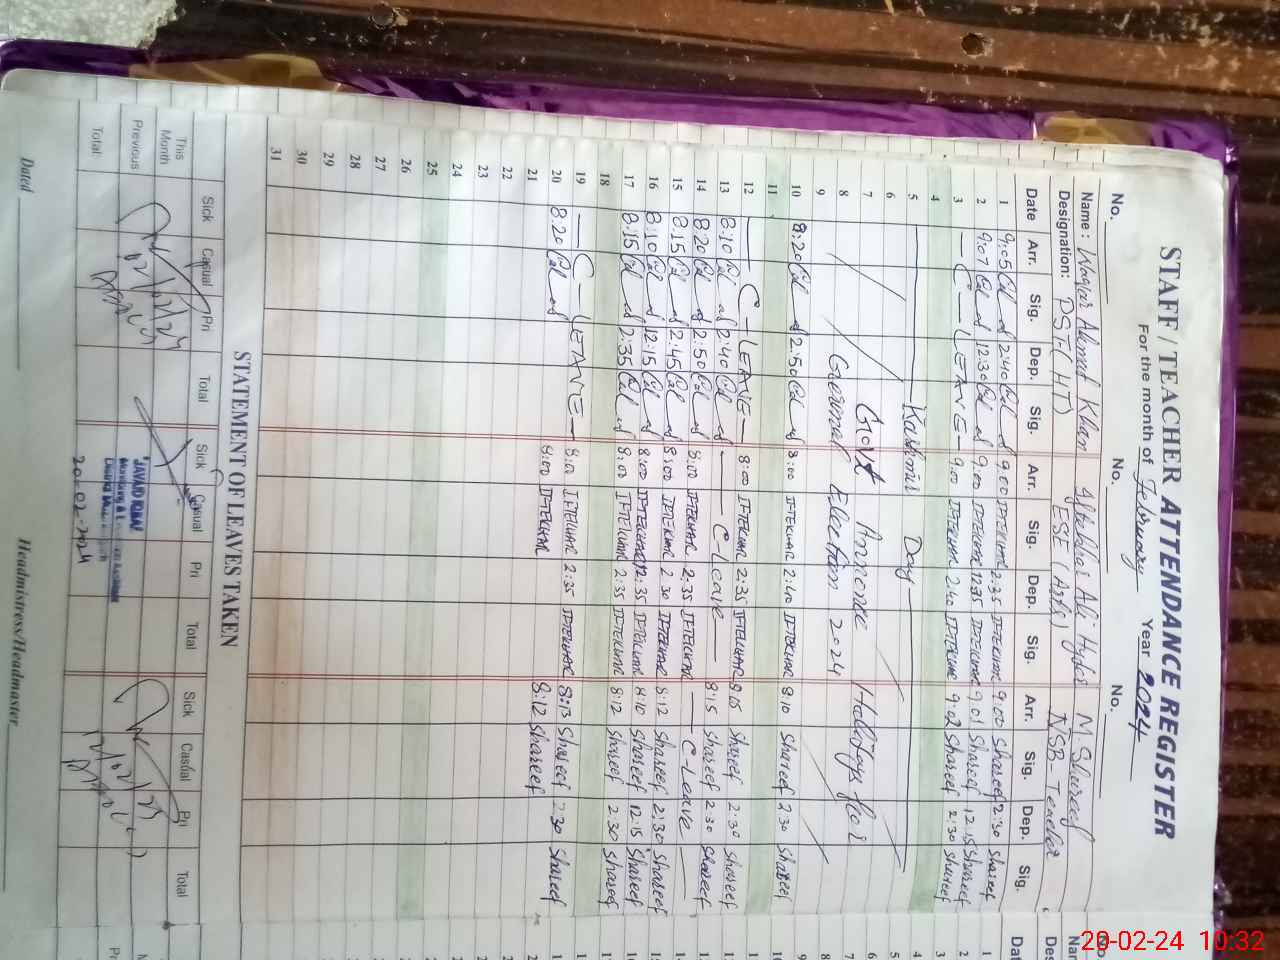 STAFF / TEACHER ATTENDANCE REGISTER
For the month of February Year 2024
No. No. No.
Name: Waqar Ahmad Khan Iftekhar Ali Hyder M. Shareef
Designation: PST-(HT) ESE (Arts) NSB-Teacher
Date Arr. Sig. Dep. Sig. Arr. Sig. Dep. Sig. Arr. Sig. Dep. Sig.
1 9:05 2:40 9:00 IFTEKHAR 2:35 IFTEKHAR 9:00 Shareef 2:30 Shareef
2 9:07 12:30 9:00 IFTEKHAR 12:35 IFTEKHAR 9:01 Shareef 12:15 Shareef
3 — C — LEAVE — 9:00 IFTEKHAR 2:40 IFTEKHAR 9:02 Shareef 2:30 Shareef
4
5 Kashmir Day
6
7 Govt Annonce Hollidays for
8 General Election 2024
9
10 8:20 2:50 8:00 IFTEKHAR 2:40 IFTEKHAR 8:10 Shareef 2:30 Shareef
11
12 — C — LEAVE — 8:00 IFTEKHAR 2:35 IFTEKHAR 8:15 Shareef 2:30 Shareef
13 8:10 2:40 — C-Leave — 8:15 Shareef 2:30 Shareef
14 8:20 2:50 8:00 IFTEKHAR 2:35 IFTEKHAR — C-Leave —
15 8:15 2:45 8:00 IFTEKHAR 2:30 IFTEKHAR 8:12 Shareef 2:30 Shareef
16 8:10 12:15 8:00 IFTEKHAR 12:35 IFTEKHAR 8:10 Shareef 12:15 Shareef
17 8:15 2:35 8:00 IFTEKHAR 2:35 IFTEKHAR 8:12 Shareef 2:30 Shareef
18
19 — C — LEAVE — 8:00 IFTEKHAR 2:35 IFTEKHAR 8:13 Shareef 2:30 Shareef
20 8:20 8:00 IFTEKHAR 8:12 Shareef
21
22
23
24
25
26
27
28
29
30
31
STATEMENT OF LEAVES TAKEN
Sick Casual Pri Total Sick Casual Pri Total Sick Casual Pri Total
This Month
Previous
Total
JAVAID IQBAL
20-02-2024
Dated Headmistress/Headmaster
20-02-24 10:32